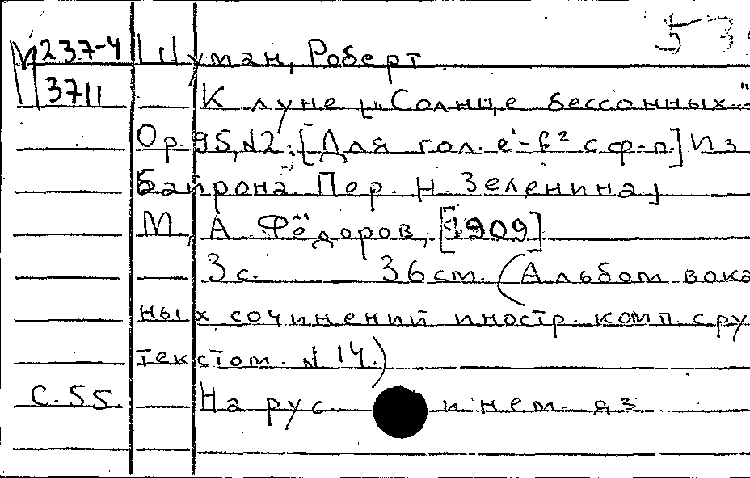 М 237-4 Шуман, Роберт
3711 К луне „Солнце бессонных..."
Op. 95, N2. [Для гол. e¹-f² с ф-п.] Из
Байрона Пер. Н. Зеленина
М., А. Фёдоров, [1909]
3 с. 36 см. (Альбом вока
ных сочинений иностр. комп. с ру
текстом. N 14.)
С. 55 На рус. и нем. яз.